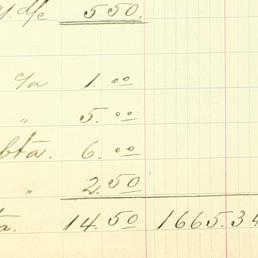 5.50.
c/a 1.00
" 5.00
bta. 6.00
" 2.50
ta. 14.50 1665.34